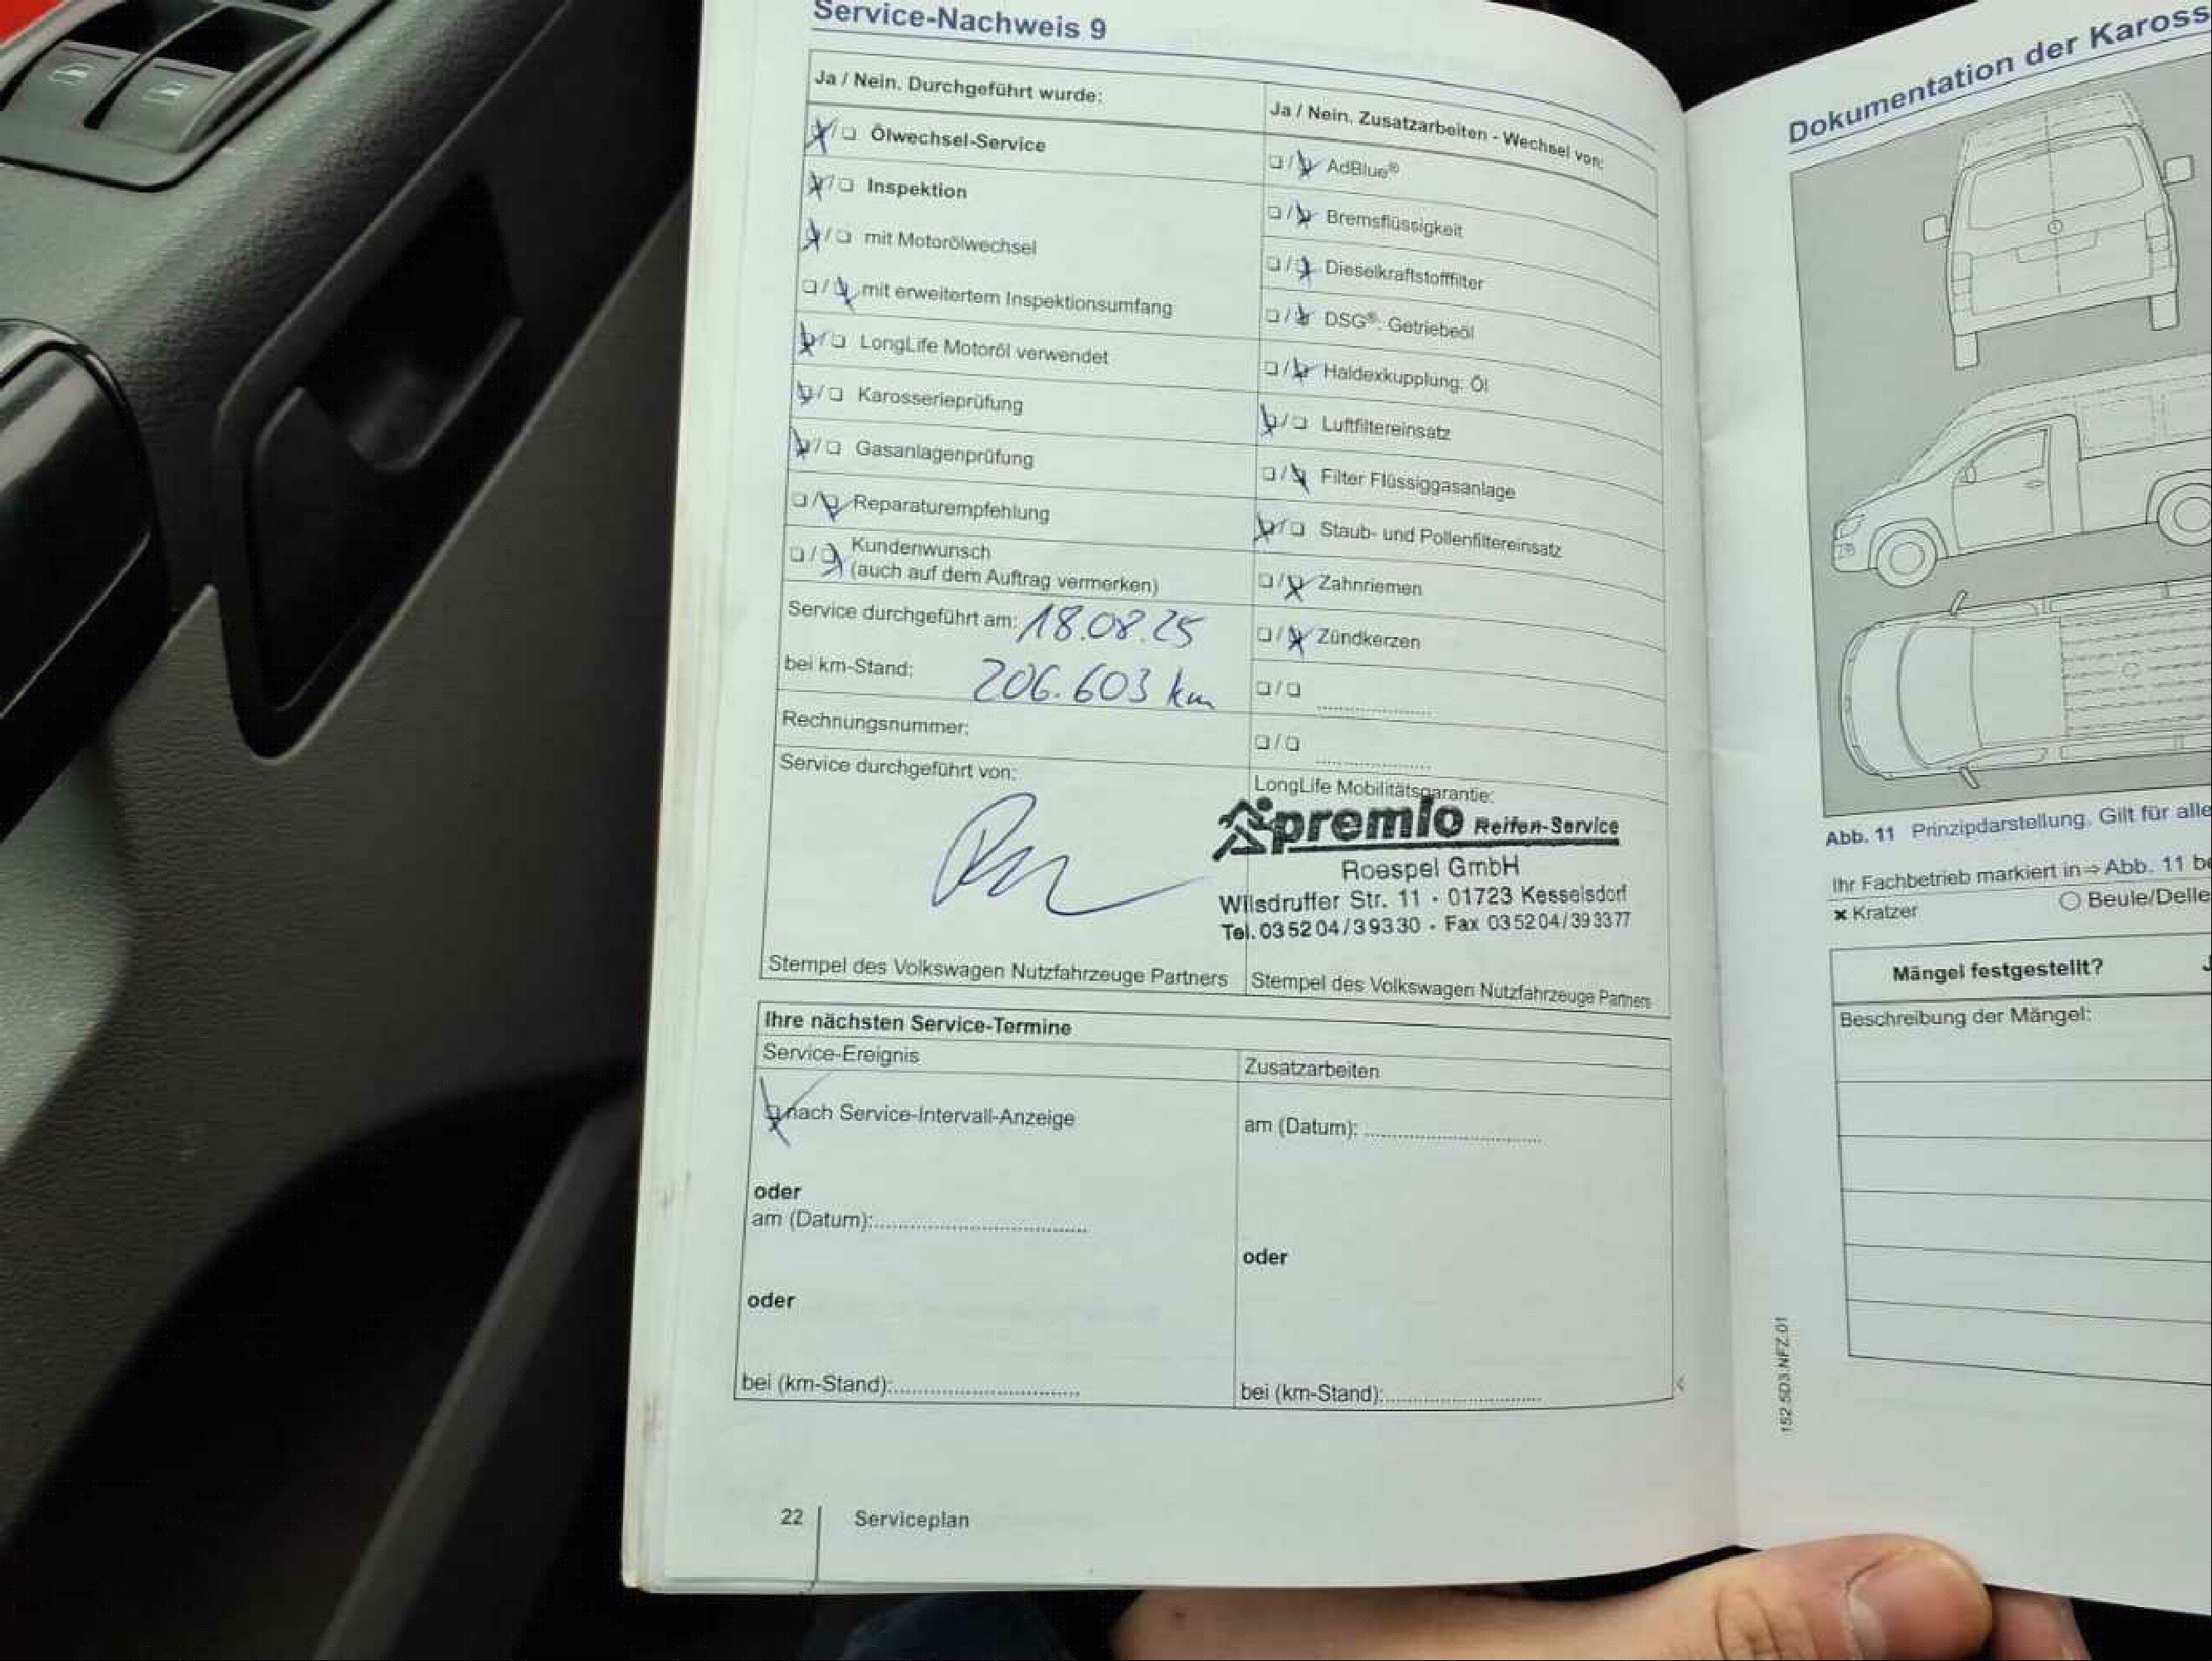 Service-Nachweis 9
Ja / Nein. Durchgeführt wurde:
Ölwechsel-Service
Inspektion
mit Motorölwechsel
mit erweitertem Inspektionsumfang
LongLife Motoröl verwendet
Karosserieprüfung
Gasanlagenprüfung
Reparaturempfehlung
Kundenwunsch
(auch auf dem Auftrag vermerken)
Service durchgeführt am: 18.08.25
bei km-Stand: 206.603 km
Rechnungsnummer:
Service durchgeführt von:
Stempel des Volkswagen Nutzfahrzeuge Partners
Ja / Nein. Zusatzarbeiten - Wechsel von:
AdBlue®
Bremsflüssigkeit
Dieselkraftstofffilter
DSG®: Getriebeöl
Haldexkupplung: Öl
Luftfiltereinsatz
Filter Flüssiggasanlage
Staub- und Pollenfiltereinsatz
Zahnriemen
Zündkerzen
LongLife Mobilitätsgarantie:
premio Reifen-Service
Roespel GmbH
Wilsdruffer Str. 11 · 01723 Kesselsdorf
Tel. 03 52 04 / 3 93 30 - Fax 03 52 04 / 39 33 77
Stempel des Volkswagen Nutzfahrzeuge Partners
Ihre nächsten Service-Termine
Service-Ereignis
nach Service-Intervall-Anzeige
oder
am (Datum):
oder
bei (km-Stand):
Zusatzarbeiten
am (Datum):
oder
bei (km-Stand):
22 Serviceplan
Dokumentation der Kaross
Abb. 11 Prinzipdarstellung. Gilt für alle
Ihr Fachbetrieb markiert in⇒Abb. 11 be
× Kratzer
Beule/Delle
Mängel festgestellt? J
Beschreibung der Mängel:
152.5D3.NFZ.01